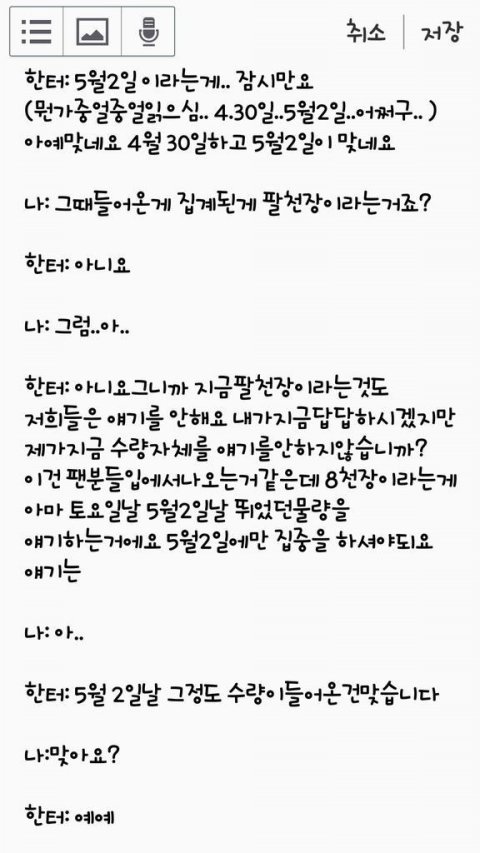 취소 저장
한터: 5월2일 이라는게.. 잠시만요
(뭔가중얼중얼읽으심.. 4.30일..5월2일..어쩌구.. )
아예맞네요 4월 30일하고 5월2일이 맞네요
나: 그때들어온게 집계된게 팔천장이라는거죠?
한터: 아니요
나: 그럼..아..
한터: 아니요그니까 지금팔천장이라는것도
저희들은 얘기를 안해요 내가지금답답하시겠지만
제가지금 수량자체를 얘기를안하지않습니까?
이건 팬분들입에서나오는거같은데 8천장이라는게
아마 토요일날 5월2일날 뛰었던물량을
얘기하는거에요 5월2일에만 집중을 하셔야되요
얘기는
나: 아..
한터: 5월 2일날 그정도 수량이들어온건맞습니다
나:맞아요?
한터: 예예